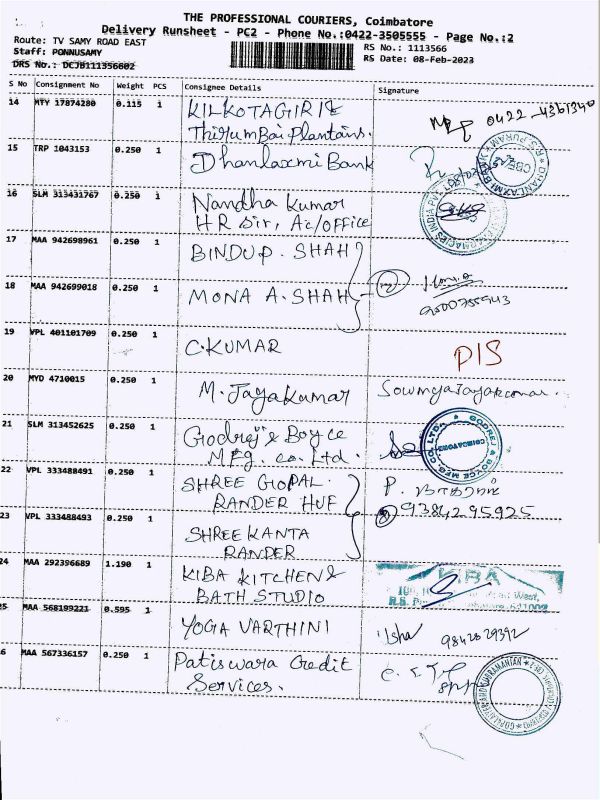 THE PROFESSIONAL COURIERS, Coimbatore
Delivery Runsheet - PC2 - Phone No.:0422-3505555 - Page No.:2
Route: TV SAMY ROAD EAST
RS No.: 1113566
Staff: PONNUSAMY
RS Date: 08-Feb-2023
DRS No.: DCJB111356602
S No Consignment No Weight PCS Consignee Details Signature
14 MTY 17874280 0.115 1 KILKOTAGIRI &
Thirumbai Plantains.
15 TRP 1043153 0.250 1 Dhanlaxmi Bank
16 SLM 313431767 0.250 1 Nandha Kumar
HR Sir, Ac/office
17 MAA 942698961 0.250 1 BINDU P. SHAH
18 MAA 942699018 0.250 1 MONA A. SHAH
19 VPL 401101709 0.250 1 C.KUMAR DIS
20 MYD 4710015 0.250 1 M. Jayakumar Sowmya Jayakumar.
21 SLM 313452625 0.250 1 Godrej & Boyce
MFg. co. Ltd.
GODREJ & BOYCE MFG. CO. LTD.
COIMBATORE
22 VPL 333488491 0.250 1 SHREE GOPAL
RANDER HUF
9384295925
23 VPL 333488493 0.250 1 SHREE KANTA
RANDER
24 MAA 292396689 1.190 1 KIBA KITCHEN &
BATH STUDIO
KIBA
25 MAA 568199221 0.595 1 YOGA VARTHINI Usha 9842029392
26 MAA 567336157 0.250 1 Patiswara Credit
Services.